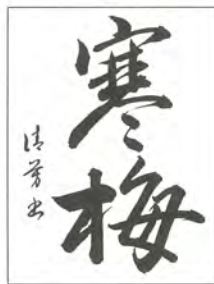 寒梅
清芳书